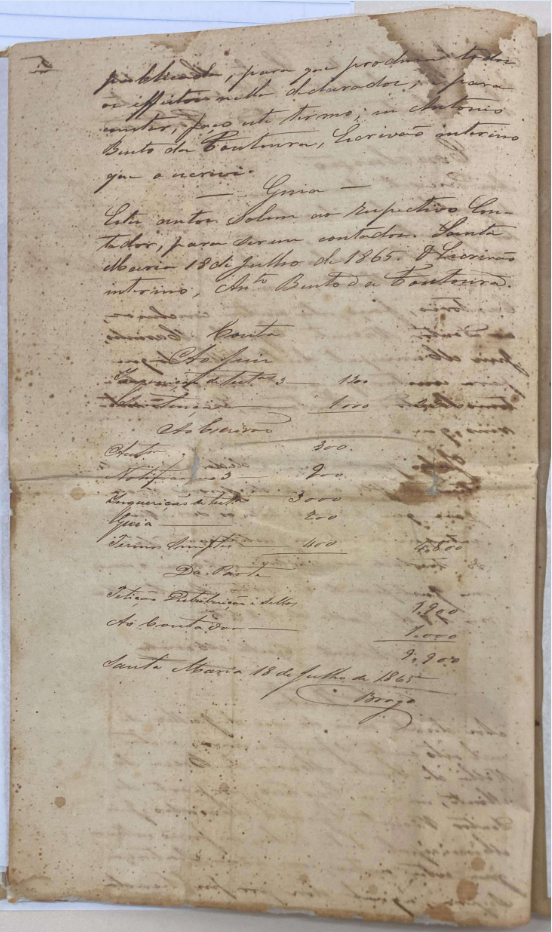 publicada, para que produza todos
os effeitos nella declarados; e para
constar, faço este termo; eu Antonio
Bento da Fontoura, Escrivão interino
que o escrevi.
— Guia —
Estes autos Sobem ao respectivo Con-
tador, para serem contados. Santa
Maria 18 de Julho de 1865. O Escrivão
interino, Antº Bento da Fontoura.
Conta
Ao Juiz
Inquirição de testas 3 —
1000
Ao Escrivão
Autoº 300
3 — 900
Inquirição de testas 3000
Guia — 200
Termos Simples — 400 4.800
Da Parte
Petição 1.900
Ao Contador — 1.000
9.900
Santa Maria 18 de Julho de 1865
Braga